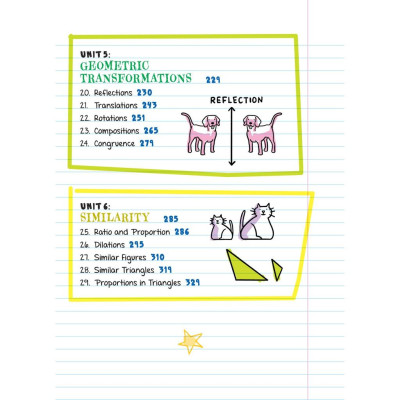 UNIT 5:
GEOMETRIC
TRANSFORMATIONS 229
20. Reflections 230
21. Translations 243
22. Rotations 251
23. Compositions 265
24. Congruence 279
REFLECTION
UNIT 6:
SIMILARITY 285
25. Ratio and Proportion 286
26. Dilations 295
27. Similar Figures 310
28. Similar Triangles 319
29. Proportions in Triangles 329